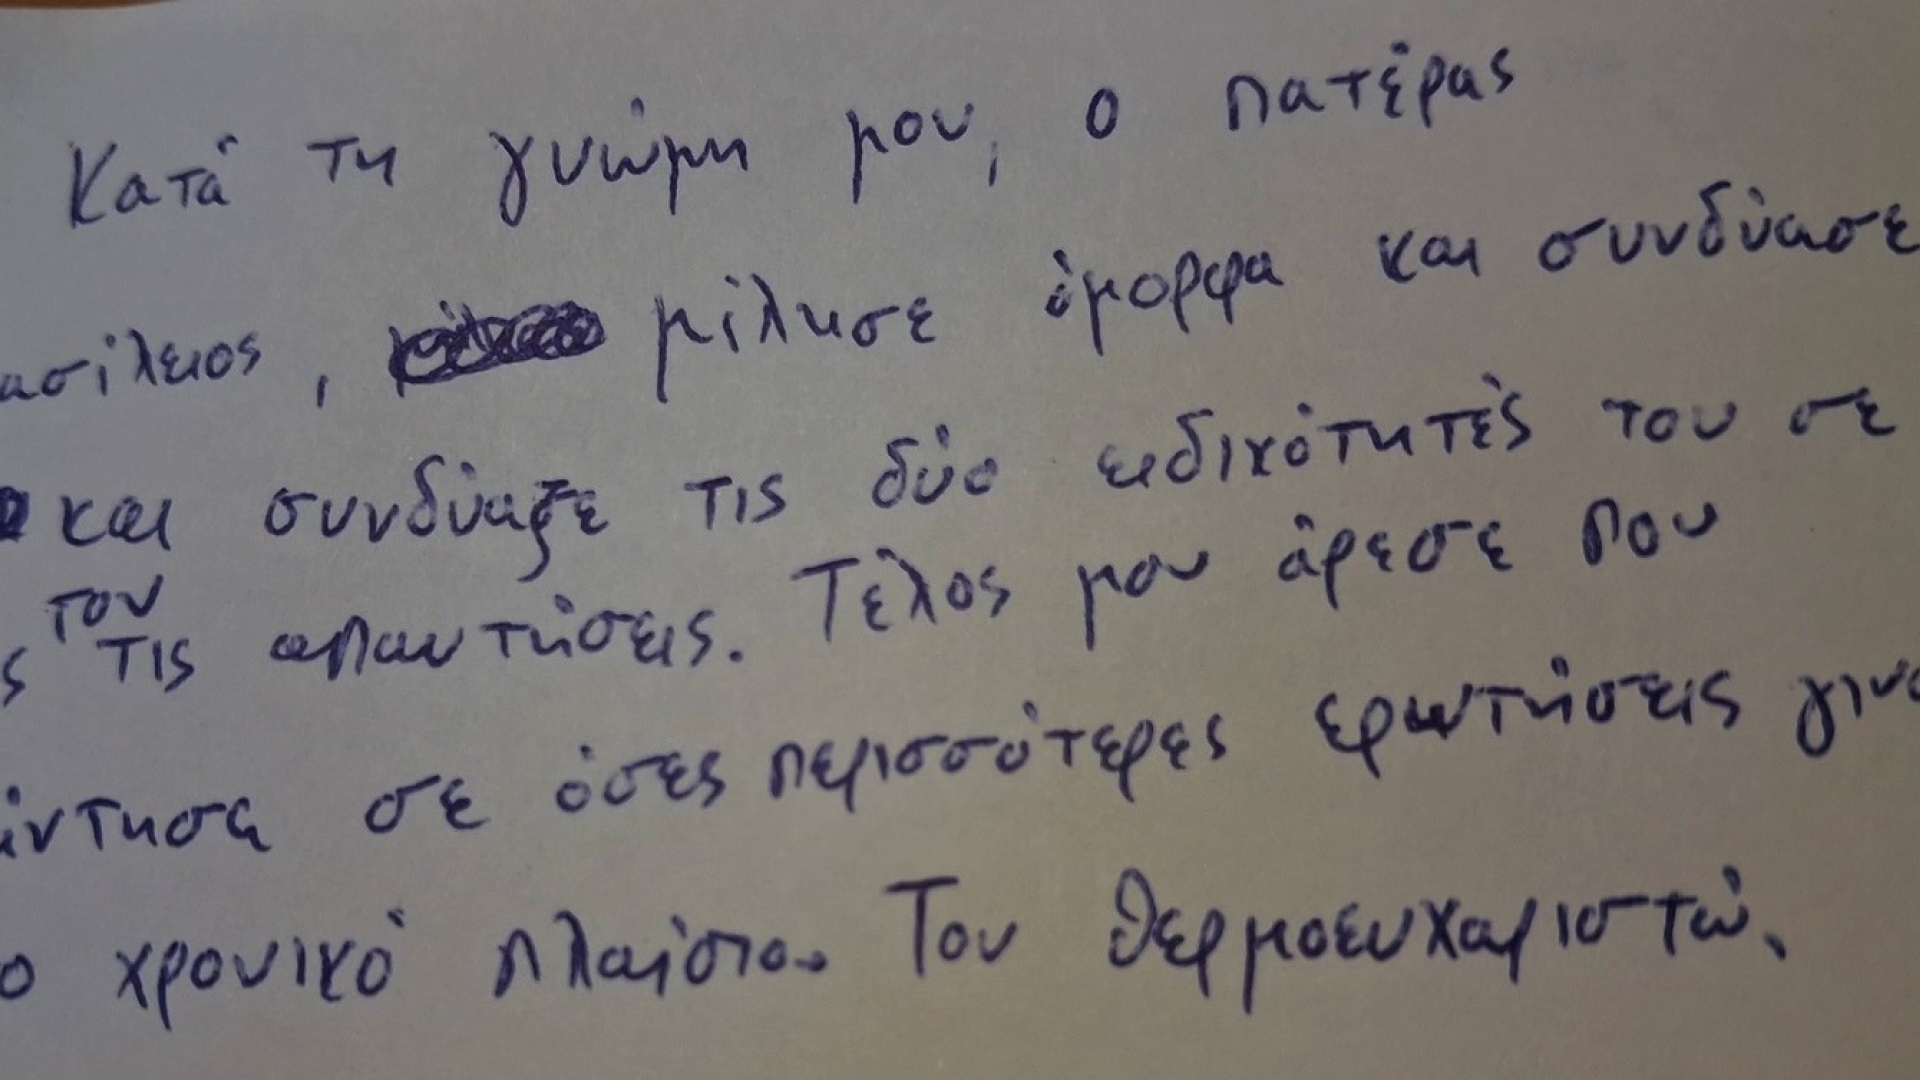 Κατά τη γνώμη μου, ο πατέρας
ασίλειος, μίλησε όμορφα και συνδύασε
και συνδύαζε τις δύο ειδικότητές του σε
ς τον τις απαντήσεις. Τέλος μου άρεσε που
άντησα σε όσες περισσότερες ερωτήσεις γινο
ο χρονικό πλαίσιο. Τον θερμοευχαριστώ.